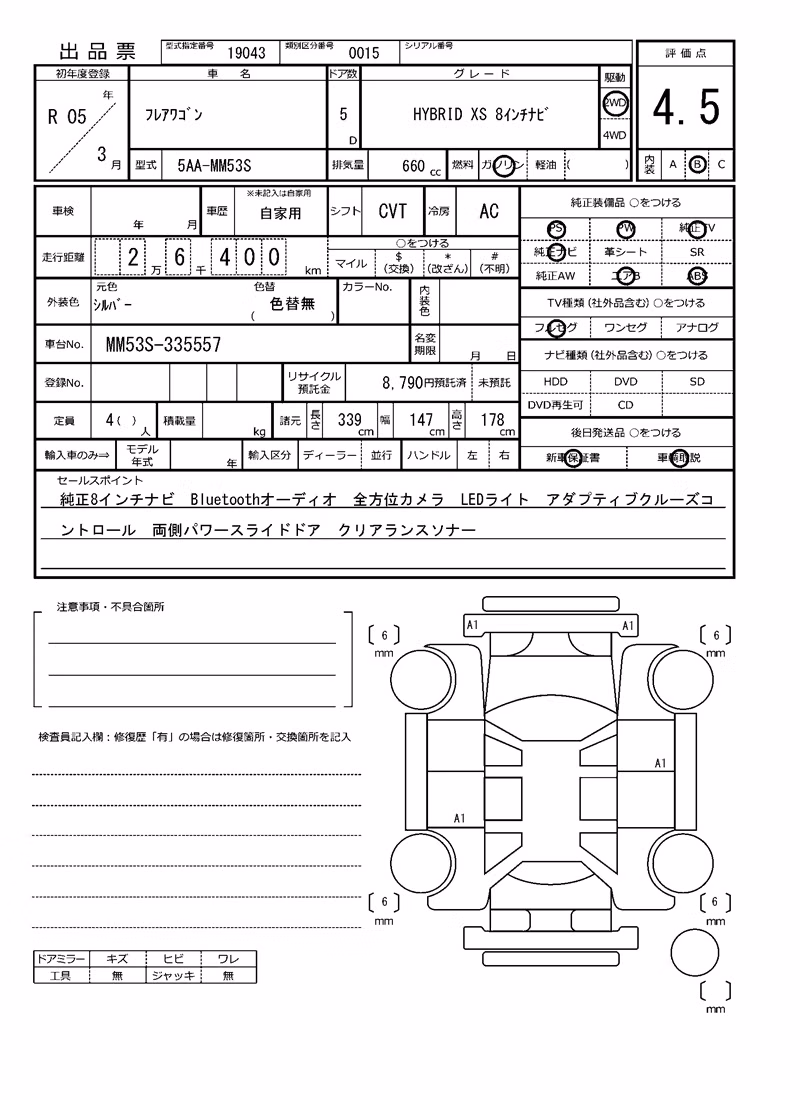 出品票
型式指定番号 19043 類別区分番号 0015 シリアル番号
評価点
4.5
内装 A B C
初年度登録 車名 ドア数 グレード 駆動
R 05 年 3 月
ﾌﾚｱﾜｺﾞﾝ
5 D
HYBRID XS 8ｲﾝﾁﾅﾋﾞ
2WD
4WD
型式 5AA-MM53S 排気量 660 cc 燃料 ガソリン 軽油 ( )
車検 年 月 車歴 ※未記入は自家用 自家用 シフト CVT 冷房 AC
走行距離 2 万 6 千 4 0 0 km
○をつける
マイル $ (交換) * (改ざん) # (不明)
外装色 元色 ｼﾙﾊﾞｰ 色替 ( 色替無 ) カラーNo. 内装色
車台No. MM53S-335557 名変期限 月 日
登録No. リサイクル預託金 8,790円預託済 未預託
定員 4 ( ) 人 積載量 kg 諸元 長さ 339 cm 幅 147 cm 高さ 178 cm
輸入車のみ⇒ モデル年式 年 輸入区分 ディーラー 並行 ハンドル 左 右
純正装備品 ○をつける
PS PW 純正TV
純正ナビ 革シート SR
純正AW エアB ABS
TV種類(社外品含む)○をつける
フルセグ ワンセグ アナログ
ナビ種類(社外品含む)○をつける
HDD DVD SD
DVD再生可 CD
後日発送品 ○をつける
新車保証書 車輌取説
セールスポイント
純正8インチナビ Bluetoothオーディオ 全方位カメラ LEDライト アダプティブクルーズコ
ントロール 両側パワースライドドア クリアランスソナー
注意事項・不具合箇所
検査員記入欄：修復歴「有」の場合は修復箇所・交換箇所を記入
ドアミラー キズ ヒビ ワレ
工具 無 ジャッキ 無
A1 A1
6 mm 6 mm
A1
A1
6 mm 6 mm
mm